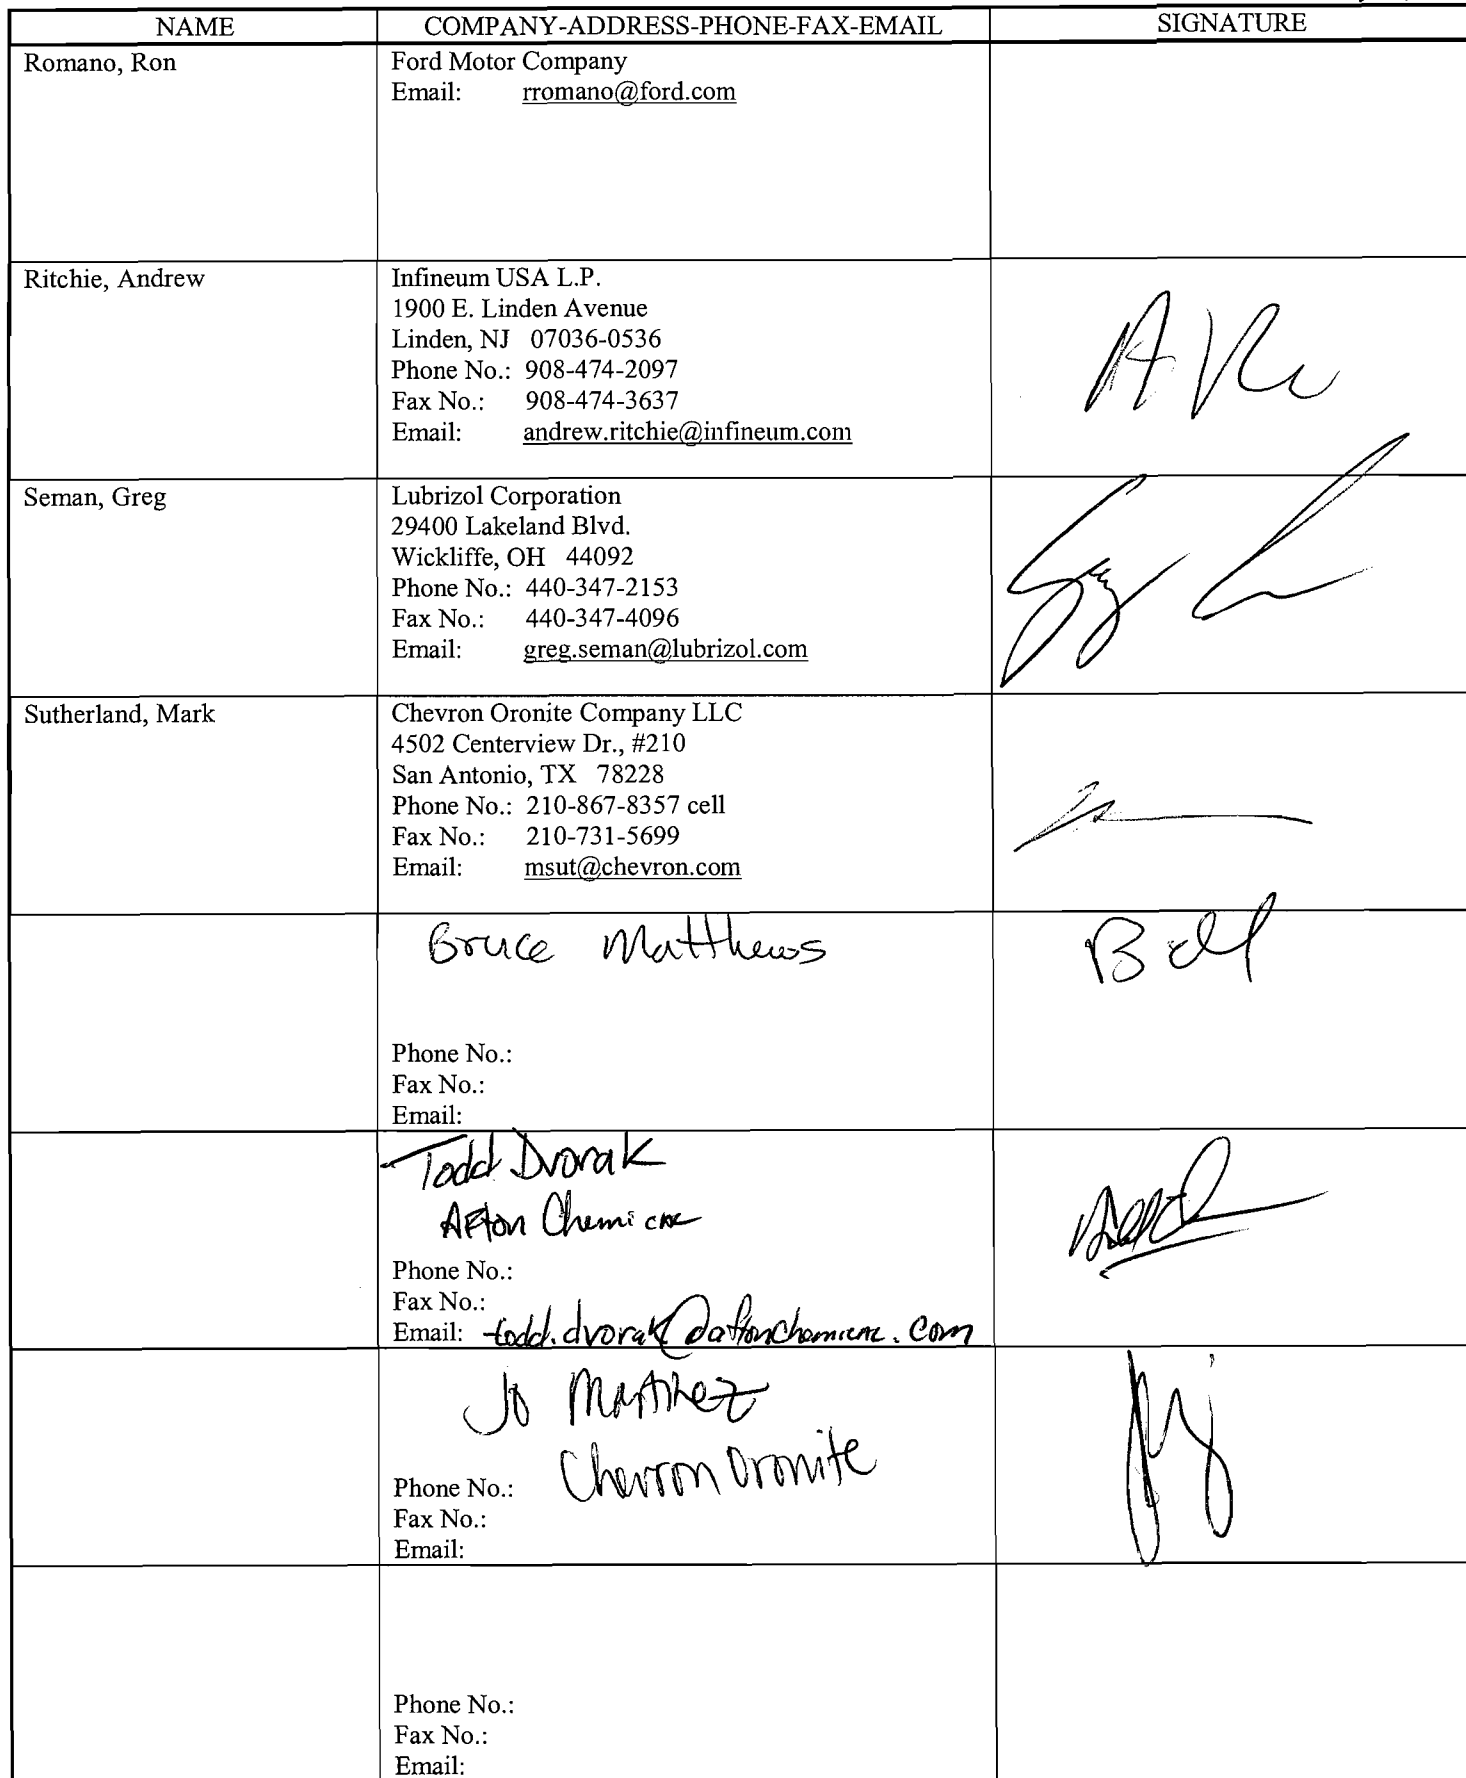 NAME COMPANY-ADDRESS-PHONE-FAX-EMAIL SIGNATURE
Romano, Ron Ford Motor Company
Email: rromano@ford.com
Ritchie, Andrew Infineum USA L.P.
1900 E. Linden Avenue
Linden, NJ 07036-0536
Phone No.: 908-474-2097
Fax No.: 908-474-3637
Email: andrew.ritchie@infineum.com
Seman, Greg Lubrizol Corporation
29400 Lakeland Blvd.
Wickliffe, OH 44092
Phone No.: 440-347-2153
Fax No.: 440-347-4096
Email: greg.seman@lubrizol.com
Sutherland, Mark Chevron Oronite Company LLC
4502 Centerview Dr., #210
San Antonio, TX 78228
Phone No.: 210-867-8357 cell
Fax No.: 210-731-5699
Email: msut@chevron.com
Bruce Matthews
Phone No.:
Fax No.:
Email:
Todd Dvorak
Afton Chemical
Phone No.:
Fax No.:
Email: todd.dvorak@aftonchemical.com
Jo Martinez
Chevron Oronite
Phone No.:
Fax No.:
Email:
Phone No.:
Fax No.:
Email: